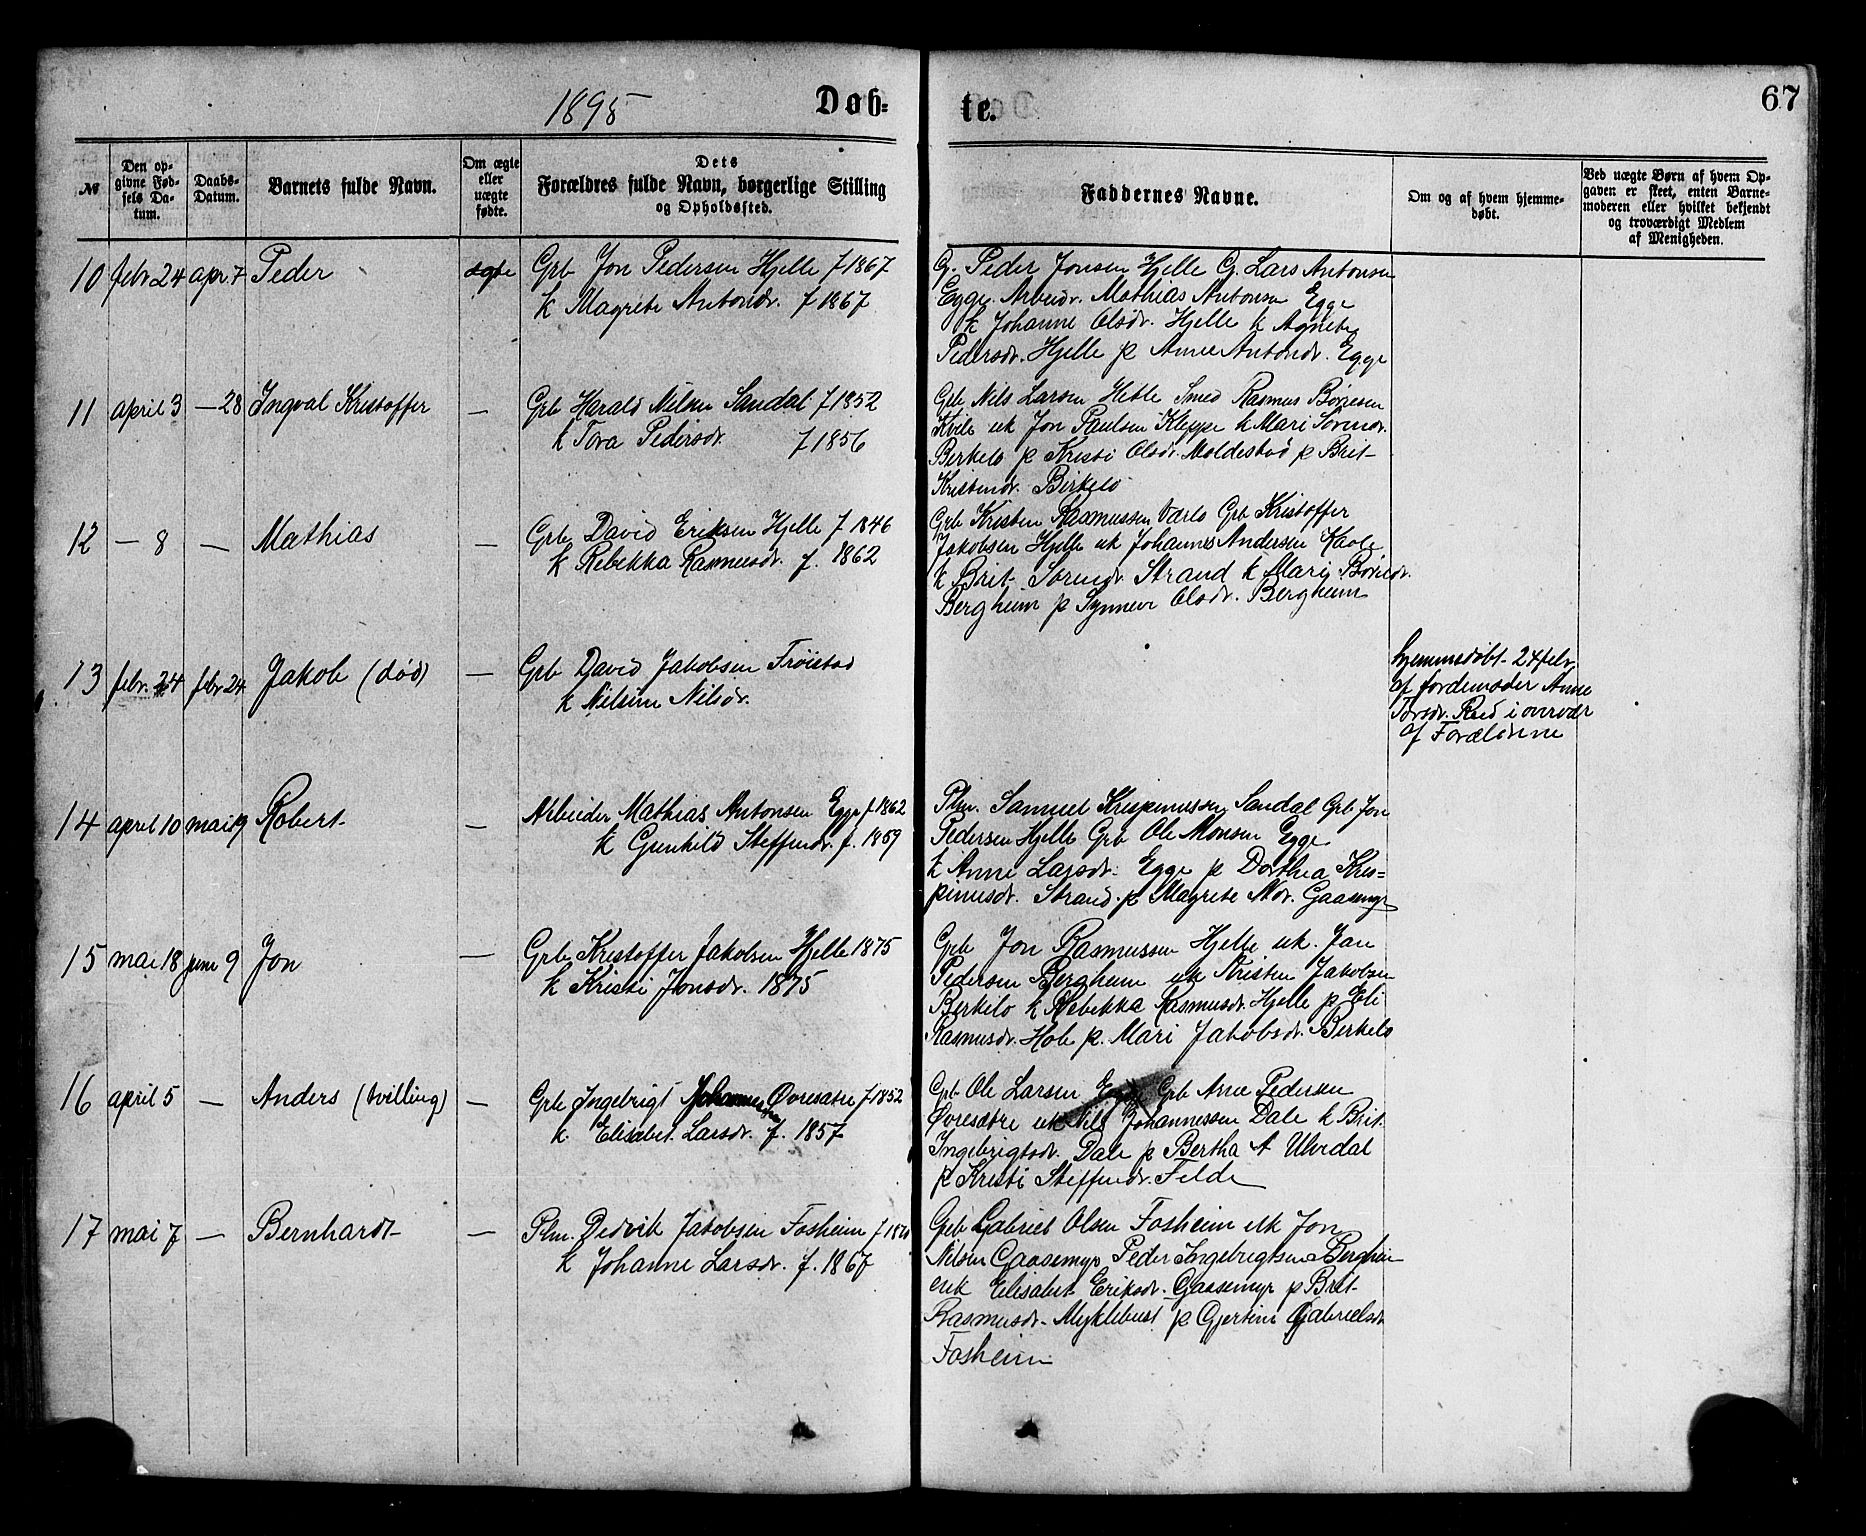 1895
Døb-
te.
67
№
Den opgivne Fødsels Datum.
Daabs-Datum.
Barnets fulde Navn.
Om ægte eller uægte fødte.
Dets Forældres fulde Navn, borgerlige Stilling og Opholdssted.
Faddernes Navne.
Om og af hvem hjemmedøbt.
Ved uægte Børn af hvem Opgaven er skeet, enten Barnemoderen eller hvilket bekjendt og troværdigt Medlem af Menigheden.
10 febr 24 apr. 7 Peder ægte Grb Jon Pedersen Hjelle f 1867
k Magrete Antondr. f 1867
G. Peder Jonsen Hjelle G. Lars Antonsen
Egge. Arbeidr. Mathias Antonsen Egge
k Johanne Olsdr. Hjelle k Agnete
Pedersdr. Hjelle p Anne Antondr. Egge
11 april 3 — 28 Ingval Kristoffer — Grb Harald Nilsen Sandal f 1852
k Tora Pedersdr. f 1856
Grb Nils Larsen Hetle Smed Rasmus Børiesen
Kvile uk Jon Paulsen Kleppe k Mari Sørendr.
Berkelo p Kristi Olsdr. Moldestad p Brit
Kristendr. Birkelo
12 — 8 — Mathias — Grb David Eriksen Hjelle f 1846
k Rebekka Rasmusdr. f. 1862
Grb Kristen Rasmussen Grb Kristoffer
Jakobsen Hjelle uk Johannes Andersen
k Brit Sørendr Strand k Mari
Bergheim p Synneve Olsdr. Bergheim
13 febr. 24 febr 24 Jakob (død) — Grb David Jakobsen Frøistad
k Nilsine Nilsdr.
hjemmedøbt 24 febr
af Jordemoder Anne
Torsdr. Red i overvær
af Forældrene
14 april 10 mai 19 Robert — Arbeider Mathias Antonsen Egge f 1862
k Gunhild Steffendr. f. 1859
Plm. Samuel Krispinussen Sandal Grb Jon
Pedersen Hjelle Grb Ole Monsen Egge
k Anne Larsdr. Egge p Dorthea Kris=
pinusdr. Strand p Magrete Gaasemyr
15 mai 18 juni 9 Jon — Grb Kristoffer Jakobsen Hjelle 1875
k Kristi Jonsdr. 1875
Grb Jon Rasmussen Hjelle uk. Jan
Pedersen Bergheim uk Kristen Jakobsen
Berkelo k Rebekka Rasmusdr. Hjelle p Eli
Rasmusdr. Hole p. Mari Jakobsdr. Berkelo
16 april 5 — Anders (tvilling) — Grb Ingebrigt Johannessen Øvresætre f 1852
k. Elisabet Larsdr. f. 1857
Grb Ole Larsen Egge Grb Arne Pedersen
Øvresætre uk Nils Johannessen Dale k Brit
Ingebrigtsdr. Dale p Bertha A Ulvedal
p Kristi Steffendr. Felde
17 mai 7 — Bernhardt — Plm. Dedvik Jakobsen Fosheim
k Johanne Larsdr. f. 1867
Grb Gabriel Olsen Fosheim uk Jon
Nilsen Gaasemyr Peder Ingebrigtsen Bergheim
uk Elisabet Eriksdr. Gaasemyr p Brit
Rasmusdr. Myklebust p Gjertine Gabrielsdr
Fosheim